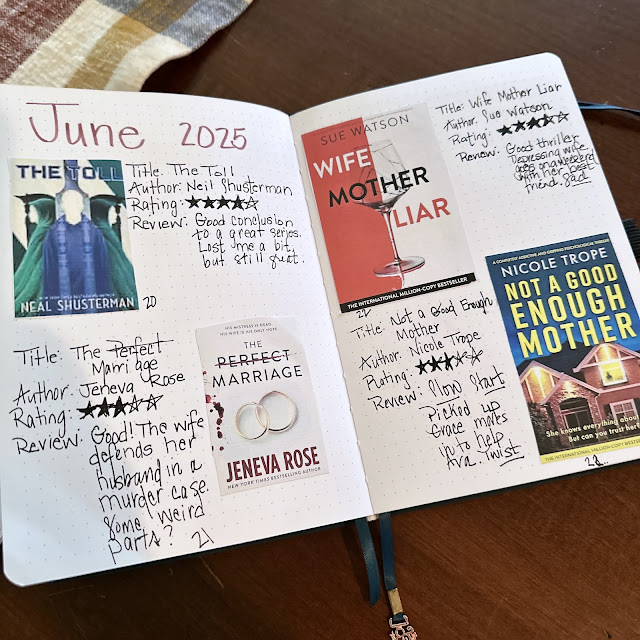 June 2025
THE TOLL
NEAL SHUSTERMAN
Title: The Toll
Author: Neil Shusterman
Rating: ★★★★☆
Review: Good conclusion
to a great series.
Lost me a bit,
but still good.
20
Title: The Perfect
Marriage
Author: Jeneva Rose
Rating: ★★★☆☆
Review: Good! The wife
defends her
husband in a
murder case.
Some weird
parts?
21
HIS MISTRESS IS DEAD.
HIS WIFE IS HIS ONLY HOPE.
THE
PERFECT
MARRIAGE
JENEVA ROSE
NEW YORK TIMES BESTSELLING AUTHOR
SUE WATSON
WIFE
MOTHER
LIAR
THE INTERNATIONAL MILLION-COPY BESTSELLER
Title: Wife Mother Liar
Author: Sue Watson
Rating: ★★★★☆
Review: Good thriller
Depressing wife
goes on a weekend
with her best
friend. Sad
22
Title: Not a Good Enough
Mother
Author: Nicole Trope
Rating: ★★★☆☆
Review: Slow Start
Picked up
Grace moves
in to help
Ava. Twist
A COMPLETELY ADDICTIVE AND GRIPPING PSYCHOLOGICAL THRILLER
NICOLE TROPE
NOT A GOOD
ENOUGH
MOTHER
She knows everything about
But can you trust her
THE INTERNATIONAL MILLION-COPY BESTSELLER